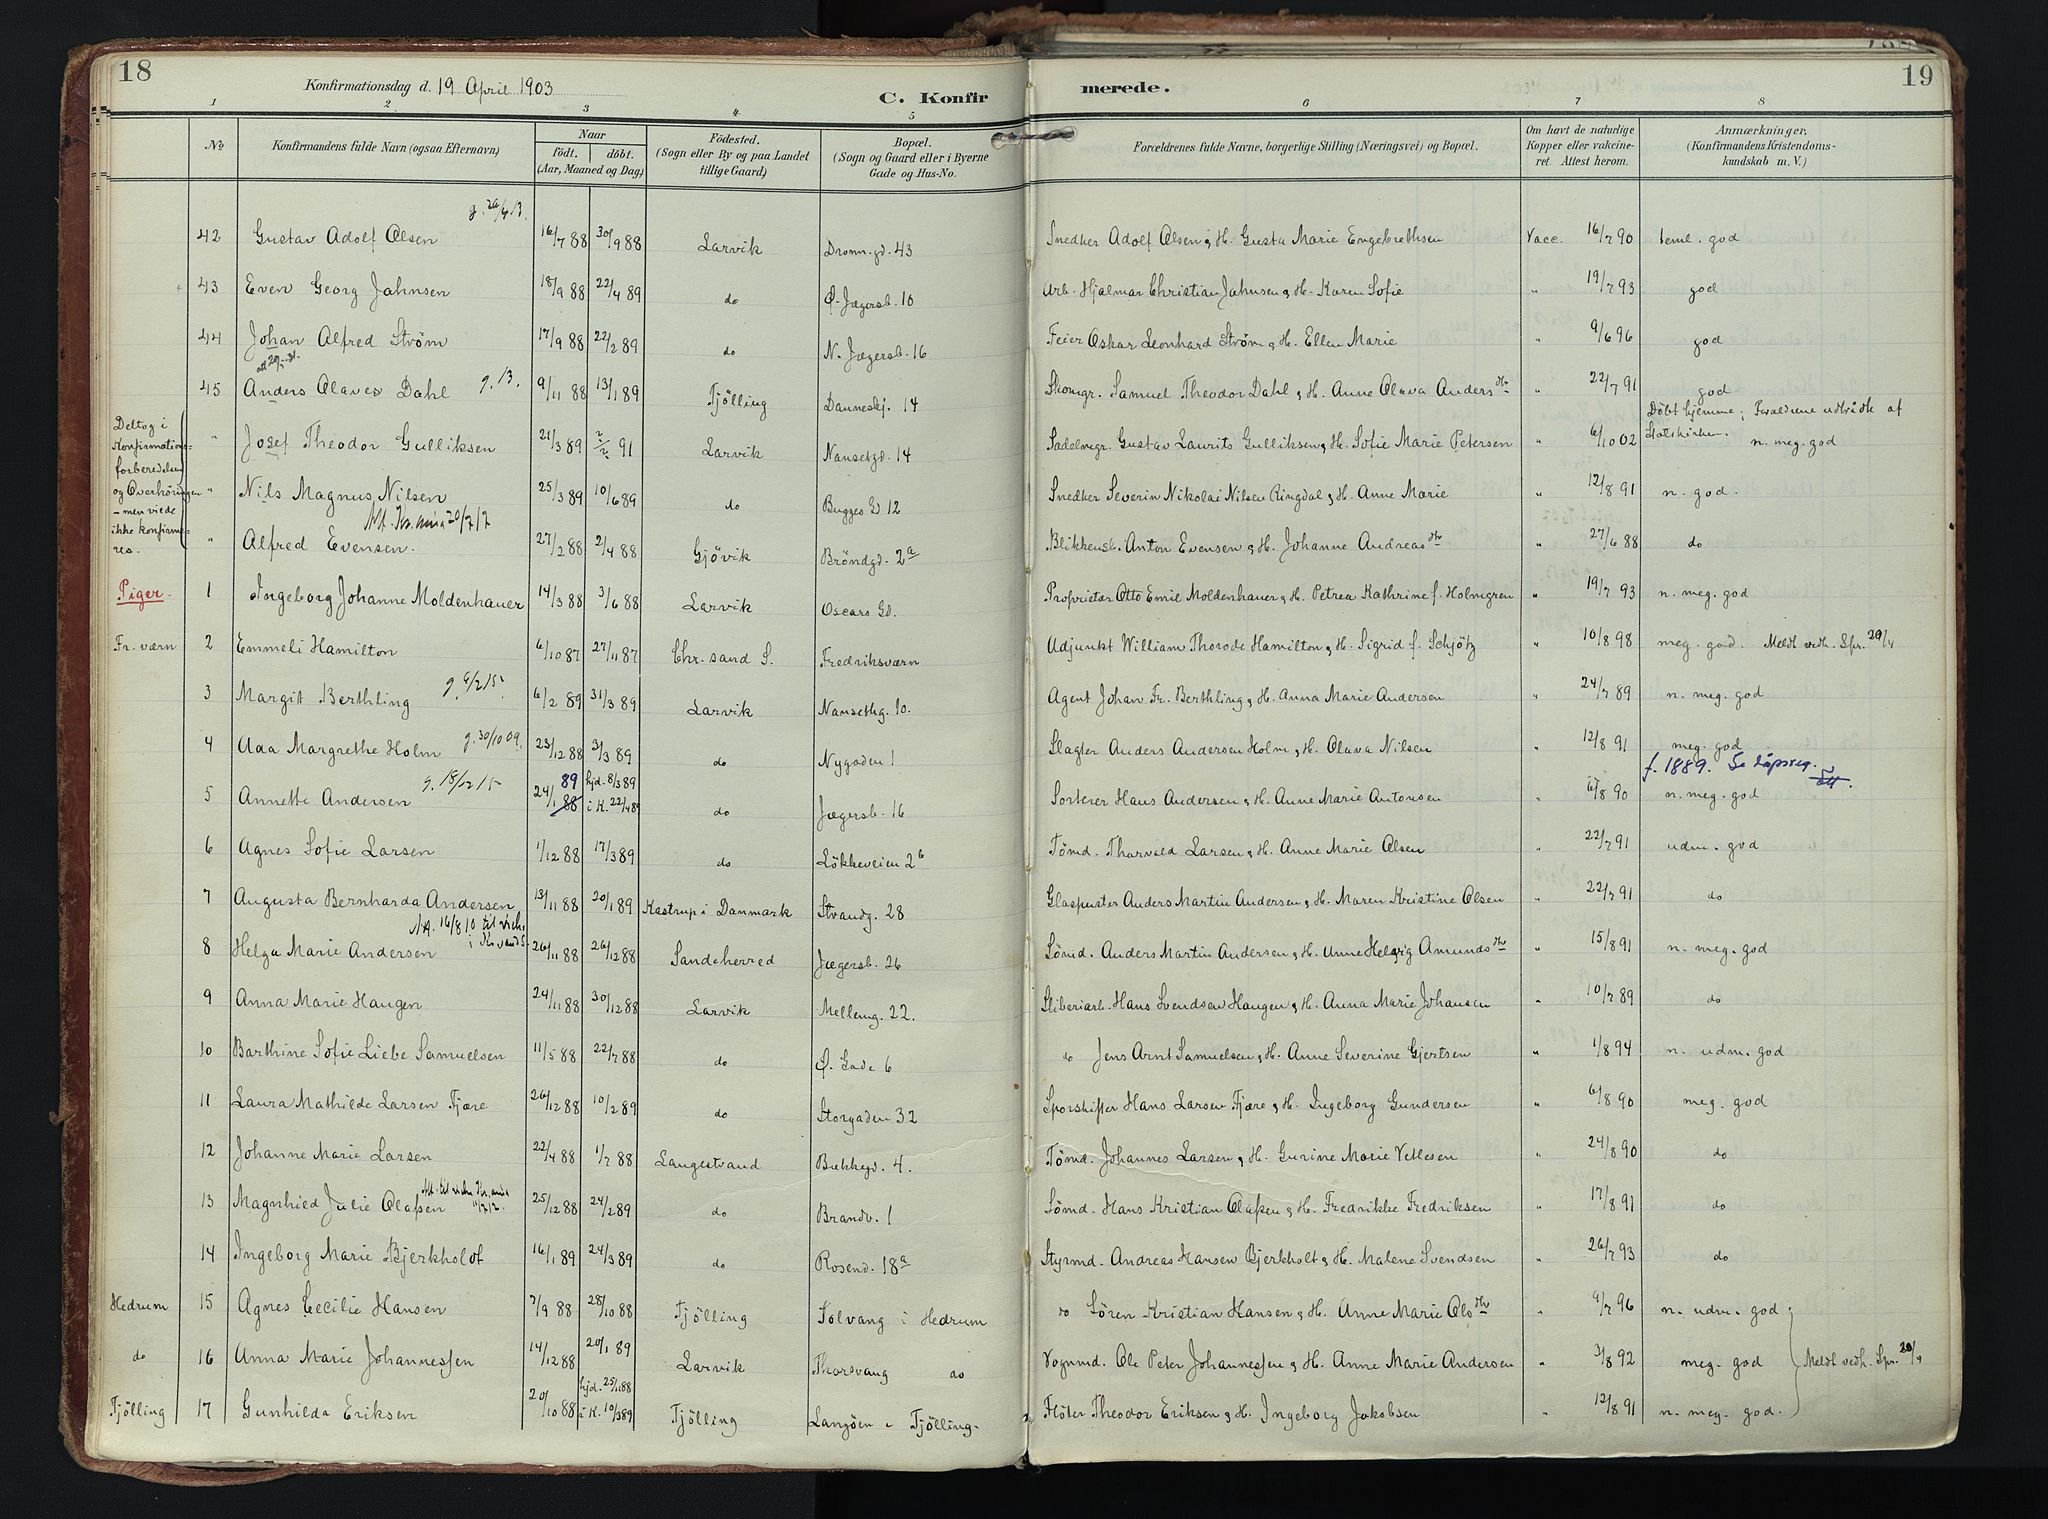 18
Konfirmationsdag d. 19 April 1903
C. Konfirmerede.
19
1 2 3 4 5 6 7 8
No
Konfirmandens fulde Navn (ogsaa Efternavn)
Naar
födt. döbt.
(Aar, Maaned og Dag)
Födested.
(Sogn eller By og paa Landet
tillige Gaard)
Bopæl.
(Sogn og Gaard eller i Byerne
Gade og Hus-No.
Forældrenes fulde Navne, borgerlige Stilling (Næringsvei) og Bopæl.
Om havt de naturlige
Kopper eller vakcine-
ret. Attest herom.
Anmærkninger.
(Konfirmandens Kristendoms-
kundskab m. V.)
42 Gustav Adolf Olsen 16/7 88 30/9 88 Larvik Dronn.gd. 43 Snedker Adolf Olsen & H. Gusta Marie Engebrethsen Vacc. 16/7 90 teml. god
43 Even Georg Jahnsen 18/9 88 22/4 89 do Ø. Jægersb. 10 Arb. Hjalmar Christian Jahnsen & H. Karen Sofie " 19/7 93 god
44 Johan Alfred Strøm 17/9 88 22/2 89 do N. Jægersb. 16 Feier Oskar Leonhard Strøm & H. Ellen Marie " 9/6 96 god
45 Anders Olaves Dahl g. 13. 9/11 88 13/1 89 Tjölling Danneskj. 14 Skomgr. Samuel Theodor Dahl & H. Anne Olava Andersdtr " 22/7 91 god
Deltog i
Konfirmations-
forberedelsen
og Overhöringen
- men vilde
ikke konfirme-
res.
Döbt hjemme; Forældrene udtrådte af
Statskirken.
" Josef Theodor Gulliksen 21/3 89 ?/? 91 Larvik Nansetgd. 14 Sadelmgr. Gustav Laurits Gulliksen & H. Sofie Marie Petersen " 6/10 02 n. meg. god
" Nils Magnus Nilsen 25/3 89 10/6 89 do Bugges Gd 12 Snedker Severin Nikolai Nilsen Ringdal & H. Anne Marie " 12/8 91 n. god.
" Alfred Evensen. 27/2 88 2/4 88 Gjövik Bröndgd. 2a Blikkensl. Anton Evensen & H. Johanne Andreasdtr " 27/6 88 do
Piger.
1 Ingeborg Johanne Moldenhauer 14/3 88 3/6 88 Larvik Oscars Gd. Proprietær Otto Emil Moldenhauer & H. Petrea Kathrine f. Holmgren " 19/7 93 n. meg. god
Fr. værn 2 Emmeli Hamilton 6/10 87 27/11 87 Chr. sand S. Fredriksværn Adjunkt William Thorode Hamilton & H. Sigrid f. Schjötz " 10/8 98 meg. god. Meldt vedk. Spr. 20/4
3 Margit Berthling g. 6/2 15. 6/2 89 31/3 89 Larvik Nansethg. 10. Agent Johan Fr. Berthling & H. Anna Marie Andersen " 24/7 89 n. meg. god
4 Aaa Margrethe Holm g. 30/10 09. 23/12 88 3/3 89 do Nygaden 1 Slagter Anders Andersen Holm & H. Olava Nilsen " 12/8 91 meg. god
f. 1889. Se döpsreg.
5 Annette Andersen g. 18/12 15 24/1 88 89 hjd. 8/3 89 i K. 22/4 89 do Jægersb. 16 Sorterer Hans Andersen & H. Anne Marie Antonsen " 6/8 90 n. meg. god
6 Agnes Sofie Larsen 1/12 88 17/3 89 do Lökkeveien 2b Tömd. Thorvald Larsen & H. Anne Marie Olsen " 22/7 91 udm. god
7 Augusta Bernharda Andersen 13/11 88 20/1 89 Kastrup i Danmark Strandg. 28 Glaspuster Anders Martin Andersen & H. Maren Kristine Olsen " 22/7 91 do
8 Helga Marie Andersen 26/11 88 26/12 88 Sandeherred Jægersb. 26 Sömd. Anders Martin Andersen & H. Anne Helvig Amundsdtr " 15/8 91 n. meg. god
9 Anna Marie Haugen 24/11 88 30/12 88 Larvik Mellemg. 22. Sliberiarb. Hans Svendsen Haugen & H. Anna Marie Johansen " 10/7 89 do
10 Barthine Sofie Liebe Samuelsen 11/5 88 22/7 88 do Ø. Gade 6 do Jens Arnt Samuelsen & H. Anne Severine Gjertsen " 1/8 94 n. udm. god
11 Laura Mathilde Larsen Fjære 26/12 88 10/2 89 do Storgaden 32 Sporskifter Hans Larsen Fjære & H. Ingeborg Gundersen " 6/8 90 meg. god
12 Johanne Marie Larsen 22/4 88 1/7 88 Langestrand Bukkegd. 4. Tömd. Johannes Larsen & H. Gurine Marie Vetlesen " 24/8 90 do
13 Magnhild Julie Olafsen 25/12 88 24/2 89 do Brandv. 1 Sömd. Hans Kristian Olafsen & H. Fredrikke Fredriksen " 17/8 91 do
14 Ingeborg Marie Bjerkholdt 16/1 89 24/3 89 do Rosend. 18a Styrmd. Andreas Hansen Bjerkholt & H. Malene Svendsen " 26/7 93 do
Hedrum 15 Agnes Cecilie Hansen 7/9 88 28/10 88 Tjölling Solvang i Hedrum do Sören Kristian Hansen & H. Anne Marie Olsdtr " 9/7 96 n. udm. god
do 16 Anna Marie Johannessen 14/12 88 20/1 89 Larvik Thorsvang do Vognmd. Ole Peter Johannessen & H. Anne Marie Andersen " 3/8 92 meg. god Meldt vedk. Spr. 20/4
Tjölling 17 Gunhilda Eriksen 20/10 88 hjd. 25/11 88 i K. 10/3 89 Tjölling Langöen i Tjölling. Flöter Theodor Eriksen & H. Ingeborg Jakobsen " 12/8 91 n. meg. god.